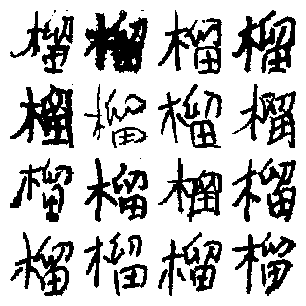 榴榴榴榴
榴榴榴榴
榴榴榴榴
榴榴榴榴